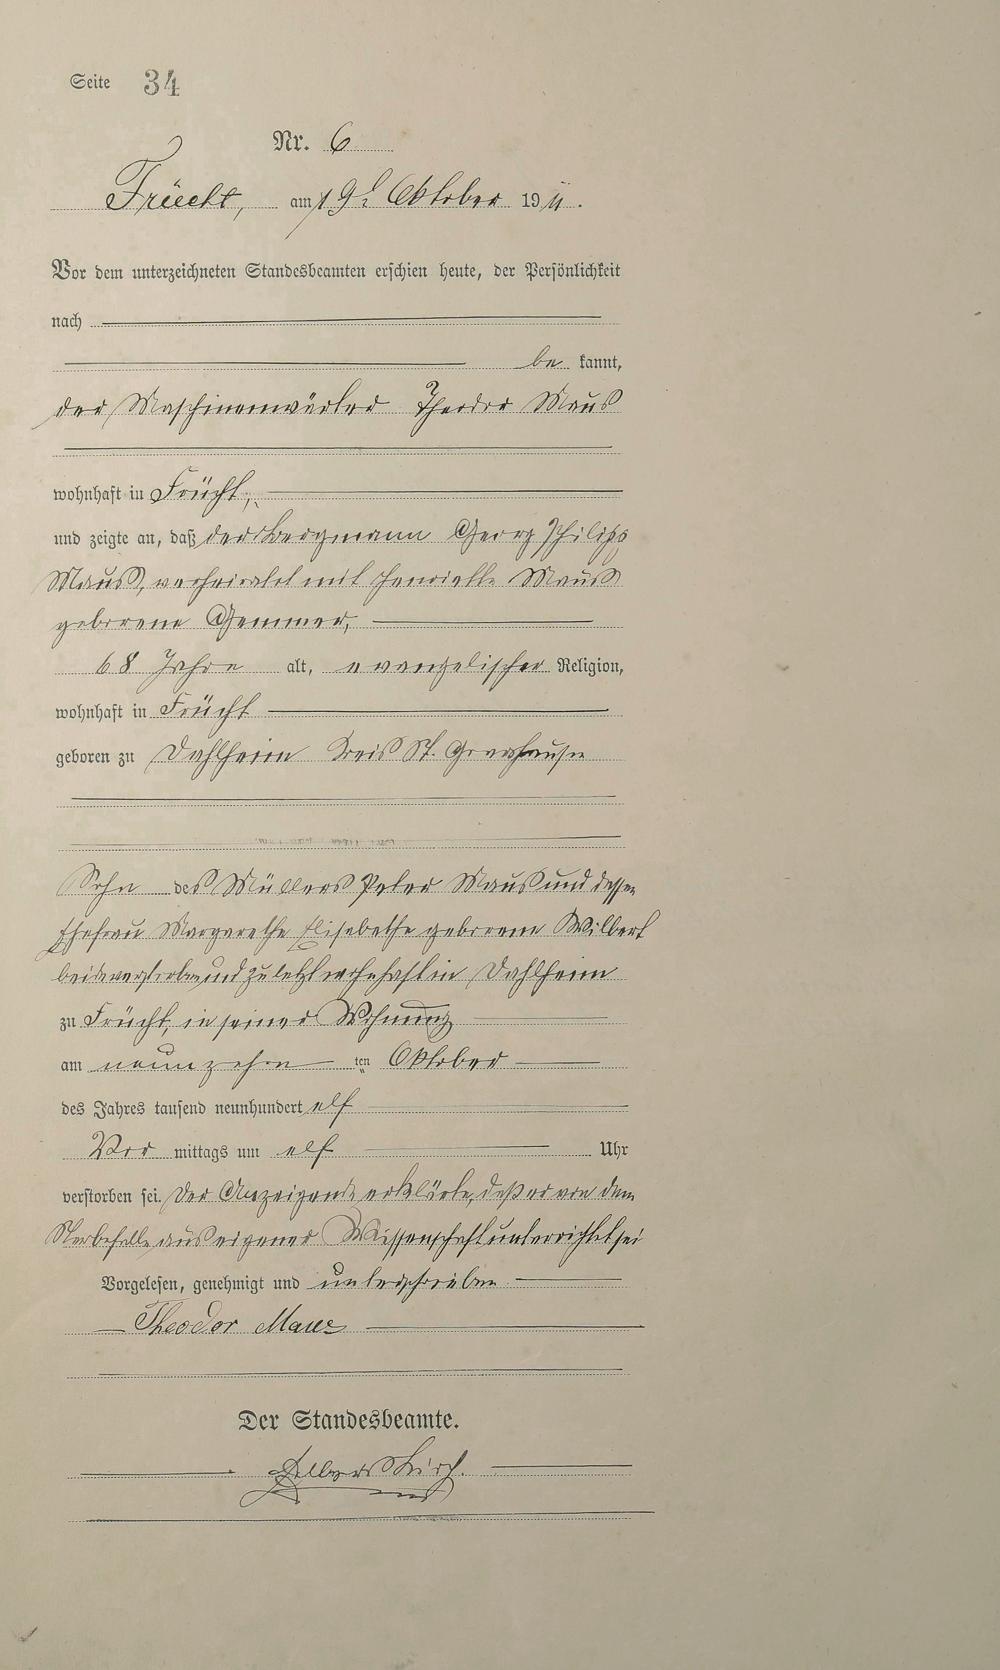 Seite 34
Nr. 6
Früecht, am 19t Oktober 1911.
Vor dem unterzeichneten Standesbeamten erschien heute, der Persönlichkeit
nach
be kannt,
der Maschinenwärter Theodor Maus
wohnhaft in Frücht,
und zeigte an, daß der Bergmann Georg Philipp
Maus, verheiratet mit Henriette Maus
geborene Gemmer,
68 Jahre alt, evangelischer Religion,
wohnhaft in Frücht
geboren zu Dahlheim Kreis St. Goarshausen
Sohn des Müllers Peter Maus und dessen
Ehefrau Margarethe Elisabethe geborene Wilbert
beide verstorben und zuletzt wohnhaft in Dahlheim
zu Frücht, in seiner Wohnung
am neunzehn ten Oktober
des Jahres tausend neunhundert elf
Vor mittags um elf Uhr
verstorben sei. Der Anzeigende erklärte, daß er von dem
Sterbefalle aus eigener Wissenschaft unterrichtet sei
Vorgelesen, genehmigt und unterschrieben
Theodor Maus
Der Standesbeamte.